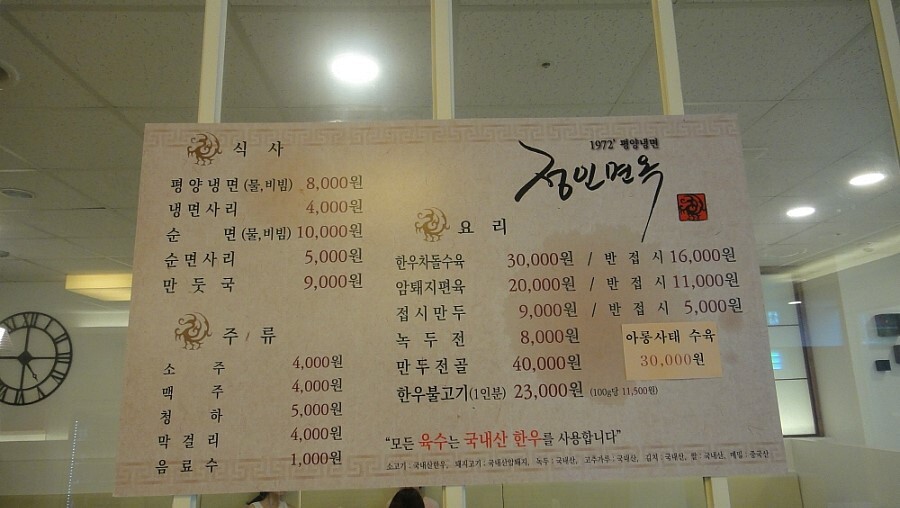 식 사
평양냉면 (물,비빔) 8,000원
냉면사리 4,000원
순 면 (물,비빔) 10,000원
순면사리 5,000원
만 둣 국 9,000원
주 / 류
소 주 4,000원
맥 주 4,000원
청 하 5,000원
막 걸 리 4,000원
음 료 수 1,000원
1972' 평양냉면
정인면옥
요 리
한우차돌수육 30,000원 / 반 접 시 16,000원
암퇘지편육 20,000원 / 반 접 시 11,000원
접시만두 9,000원 / 반 접 시 5,000원
녹 두 전 8,000원
만두전골 40,000원
한우불고기(1인분) 23,000원 (100g당 11,500원)
아롱사태 수육
30,000원
"모든 육수는 국내산 한우를 사용합니다"
소고기 : 국내산한우, 돼지고기 : 국내산암퇘지, 녹두 : 국내산, 고추가루 : 국내산, 김치 : 국내산, 쌀 : 국내산, 메밀 : 중국산